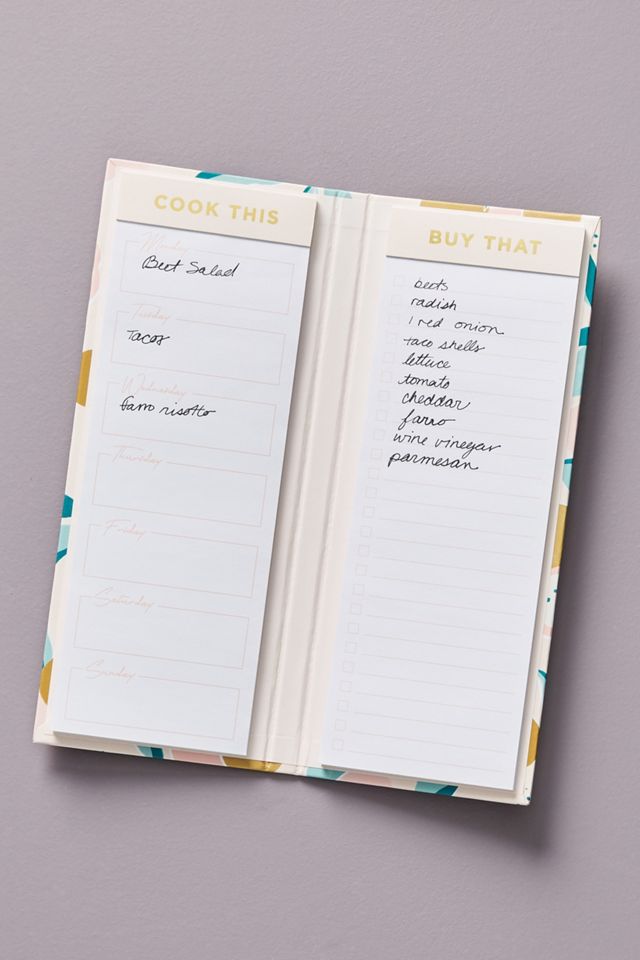 COOK THIS
Monday
Beet Salad
Tuesday
Tacos
Wednesday
farro risotto
Thursday
Friday
Saturday
Sunday
BUY THAT
beets
radish
1 red onion
taco shells
lettuce
tomato
cheddar
farro
wine vinegar
parmesan